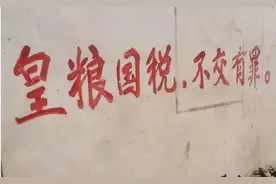 皇粮国税、不交有罪。